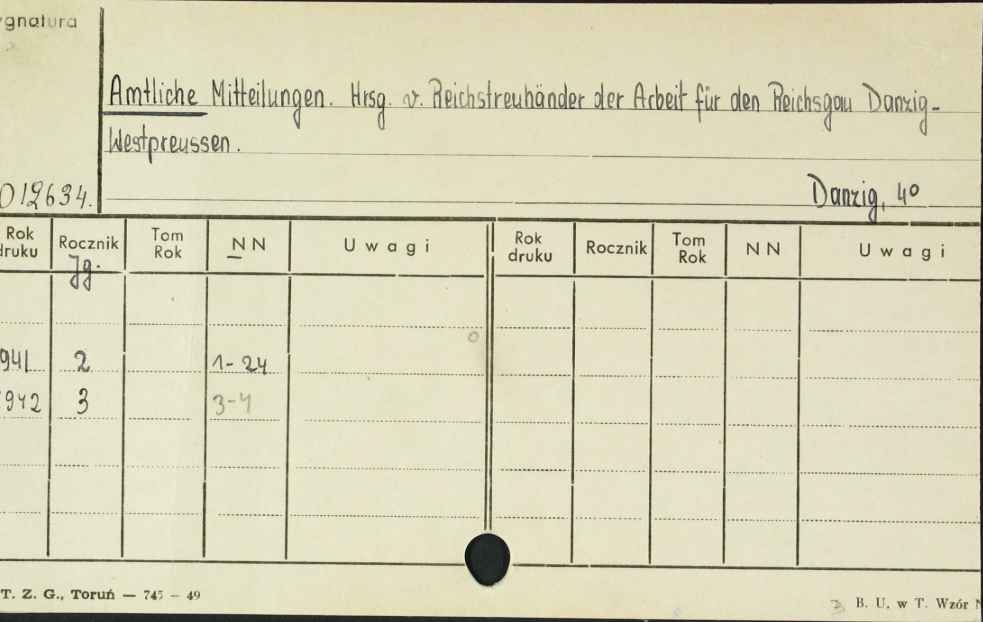 ygnatura
Amtliche Mitteilungen. Hrsg. v. Reichstreuhänder der Arbeit für den Reichsgau Danzig-
Westpreussen.
012634.
Danzig, 4º
Rok druku Rocznik Tom Rok NN Uwagi Rok druku Rocznik Tom Rok NN Uwagi
Jg.
941 2 1-24
1942 3 3-4
T. Z. G., Toruń — 745 — 49
B. U. w T. Wzór N